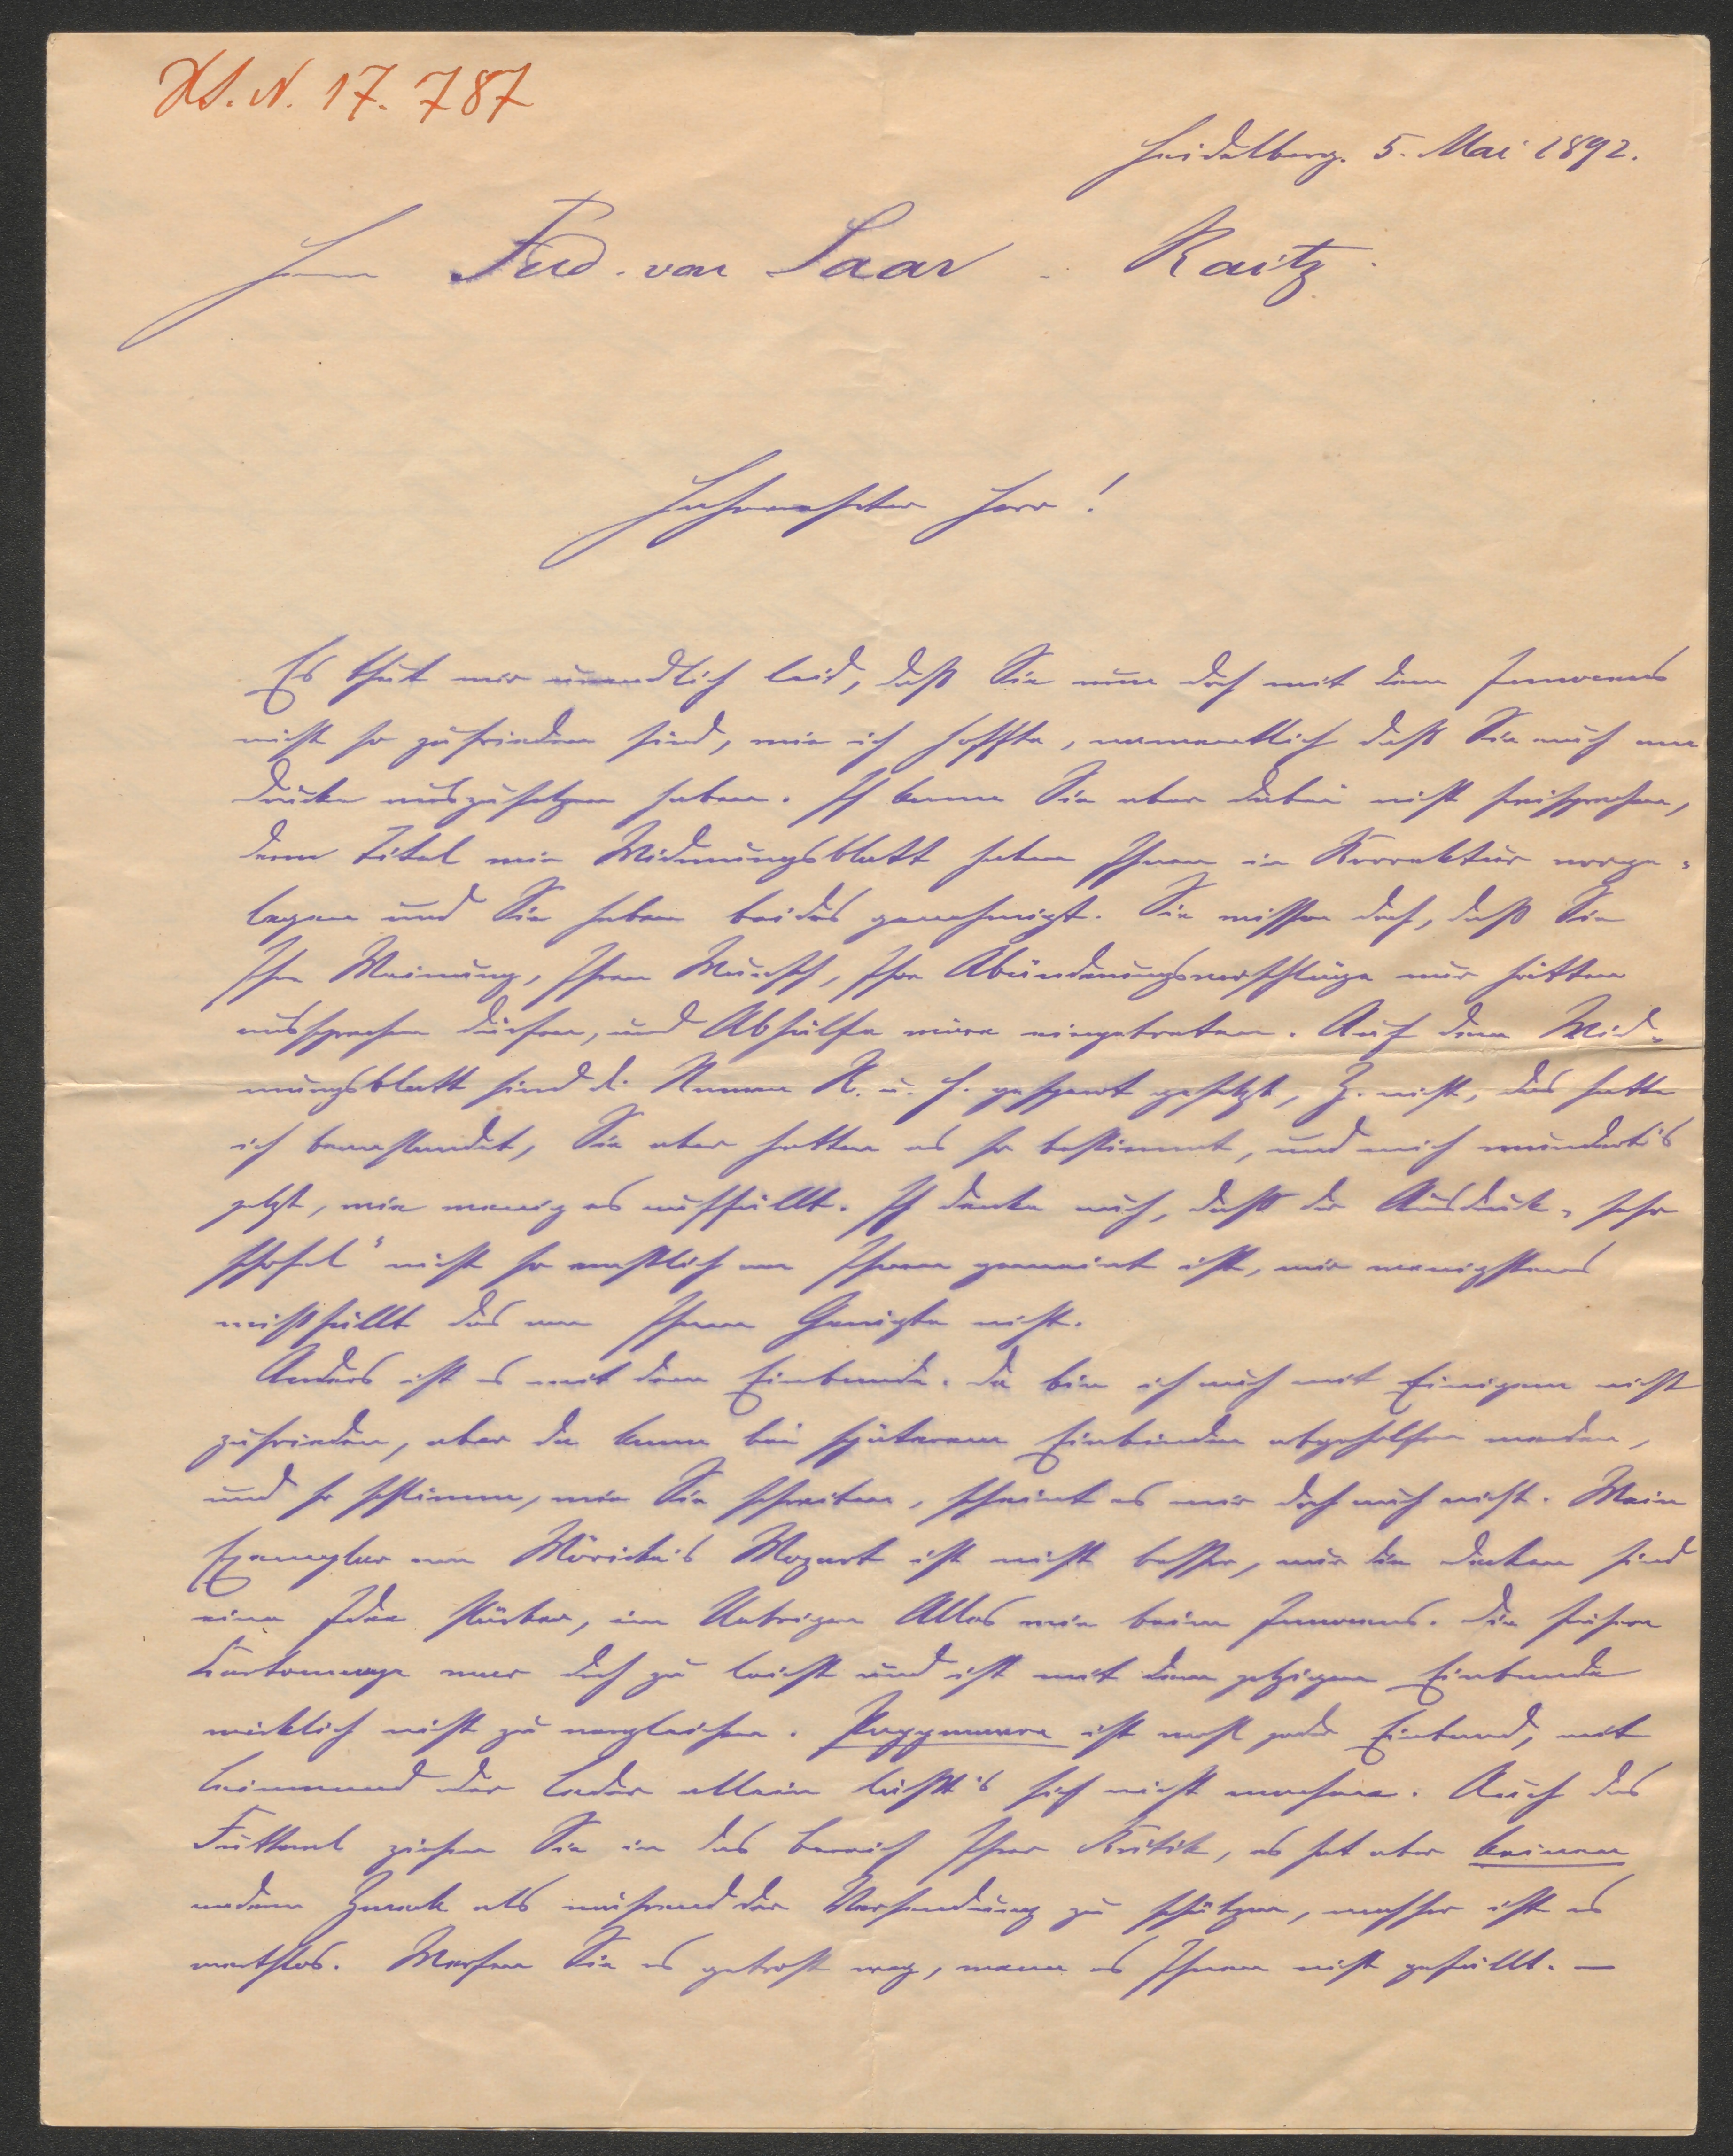 H.S. N. 17.787
Heidelberg. 5. Mai 1892.
Herrn Ferd. von Saar . Raitz.
Hochverehrter Herr!
Es thut mir unendlich leid, daß Sie nun doch mit dem Innocens
nicht so zufrieden sind, wie ich hoffte, namentlich daß Sie auch am
Drucke auszusetzen haben. Ich kann Sie aber dabei nicht freisprechen,
denn Titel wie Widmungsblatt haben Ihnen in Korrektur vorge-
legen und Sie haben beides genehmigt. Sie wissen doch, daß Sie
Ihre Meinung, Ihren Wunsch, Ihre Abänderungsvorschläge nur hätten
aussprechen dürfen, und Abhülfe wäre eingetreten. Auf dem Wid-
mungsblatt sind d. Namen K. u. F. gesperrt gesetzt, Z. nicht, das hatte
ich beanstandet, Sie aber hatten es so bestimmt, und mich wundert's
jetzt, wie wenig es auffällt. Ich denke auch, daß der Ausdruck „sehr
schofel" nicht so ernstlich von Ihnen gemeint ist, mir wenigstens
mißfällt das von Ihnen nicht.
Anders ist es mit dem Einbande. Da bin ich auch mit Einigem nicht
zufrieden, aber da kann bei späterem Einbinden abgeholfen werden,
und so schlimm, wie Sie schreiben, scheint es mir doch auch nicht. Mein
Exemplar von Möricke's Mozart ist nicht besser, nur die Decken sind
eine Idee stärker, im Uebrigen Alles wie beim Innocens. Die frühere
Kartonnage war doch zu leicht und ist mit dem jetzigen Einbande
wirklich nicht zu vergleichen. Pappwaare ist wohl jeder Einband, mit
Leinwand oder Leder allein läßt's sich nicht machen. Auch das
Futteral ziehen Sie in das Bereich Ihrer Kritik, es hat aber keinen
andern Zweck als während der Versendung zu schützen, nachher ist es
werthlos. Werfen Sie es getrost weg, wenn es Ihnen nicht gefällt. —